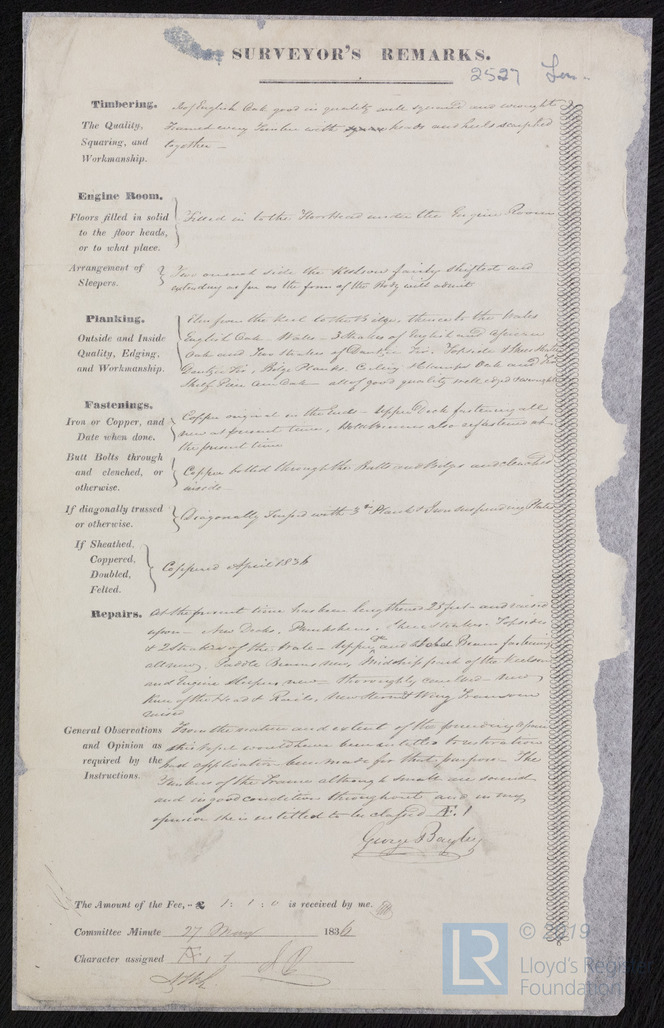 SURVEYOR'S REMARKS.
2527 Lon..
Timbering.
The Quality,
Squaring, and
Workmanship.
Of English Oak good in quality well squared and wrought
Framed every Timber with heads and heels scarphed
together –
Engine Room.
Floors filled in solid
to the floor heads,
or to what place.
Filled in to the Floor Head under the Engine Room
Arrangement of
Sleepers.
Two on each side the Keelson fairly shifted and
extending as far as the form of the Body will admit
Planking.
Outside and Inside
Quality, Edging,
and Workmanship.
Elm from the Keel to the Bilge, thence to the Wales
English Oak. Wales – 3 Strakes of English and African
Oak and Two Strakes of Dantzic Fir. Topside & Sheer
Dantzic Fir, Bilge Planks, Ceiling & Clamps Oak and Fir
Shelf Piece Am Oak – all of good quality well edged & wrought
Fastenings.
Iron or Copper, and
Date when done.
Copper original in the Ends – Upper Deck fastening all
new at present time, also refastened at
the present time
Butt Bolts through
and clenched, or
otherwise.
Copper bolted through the Butts and Bilge and clenched
inside –
If diagonally trussed
or otherwise.
Diagonally with 3 In Plank & Iron suspending Plates
If Sheathed,
Coppered,
Doubled,
Felted.
Coppered April 1836
Repairs.
At the present time has been lengthened 25 feet – and raised
upon – New Decks, Plansheers. Sheer Strakes. Topsides
& 2 Strakes of the Wale – Upper Dk and Hold Beam fastenings
all new, Paddle Beams new, Midship piece of the Keelson
and Engine Sleepers new – thoroughly caulked – New
Knee of the Head & Rails, New & Wing Transom
raised
General Observations
and Opinion as
required by the
Instructions.
From the nature and extent of the foregoing repair
this Vessel would have been entitled to restoration
had application been made for that purpose – The
Timbers of the Frame although small are sound
and in good condition throughout and in my
opinion she is entitled to be classed Æ. 1
George Bayley
The Amount of the Fee, .. £ 1 : 1 : 0 is received by me.
Committee Minute 27 May 1836
Character assigned Æ 1
LR
© 2019
Lloyd's Register
Foundation